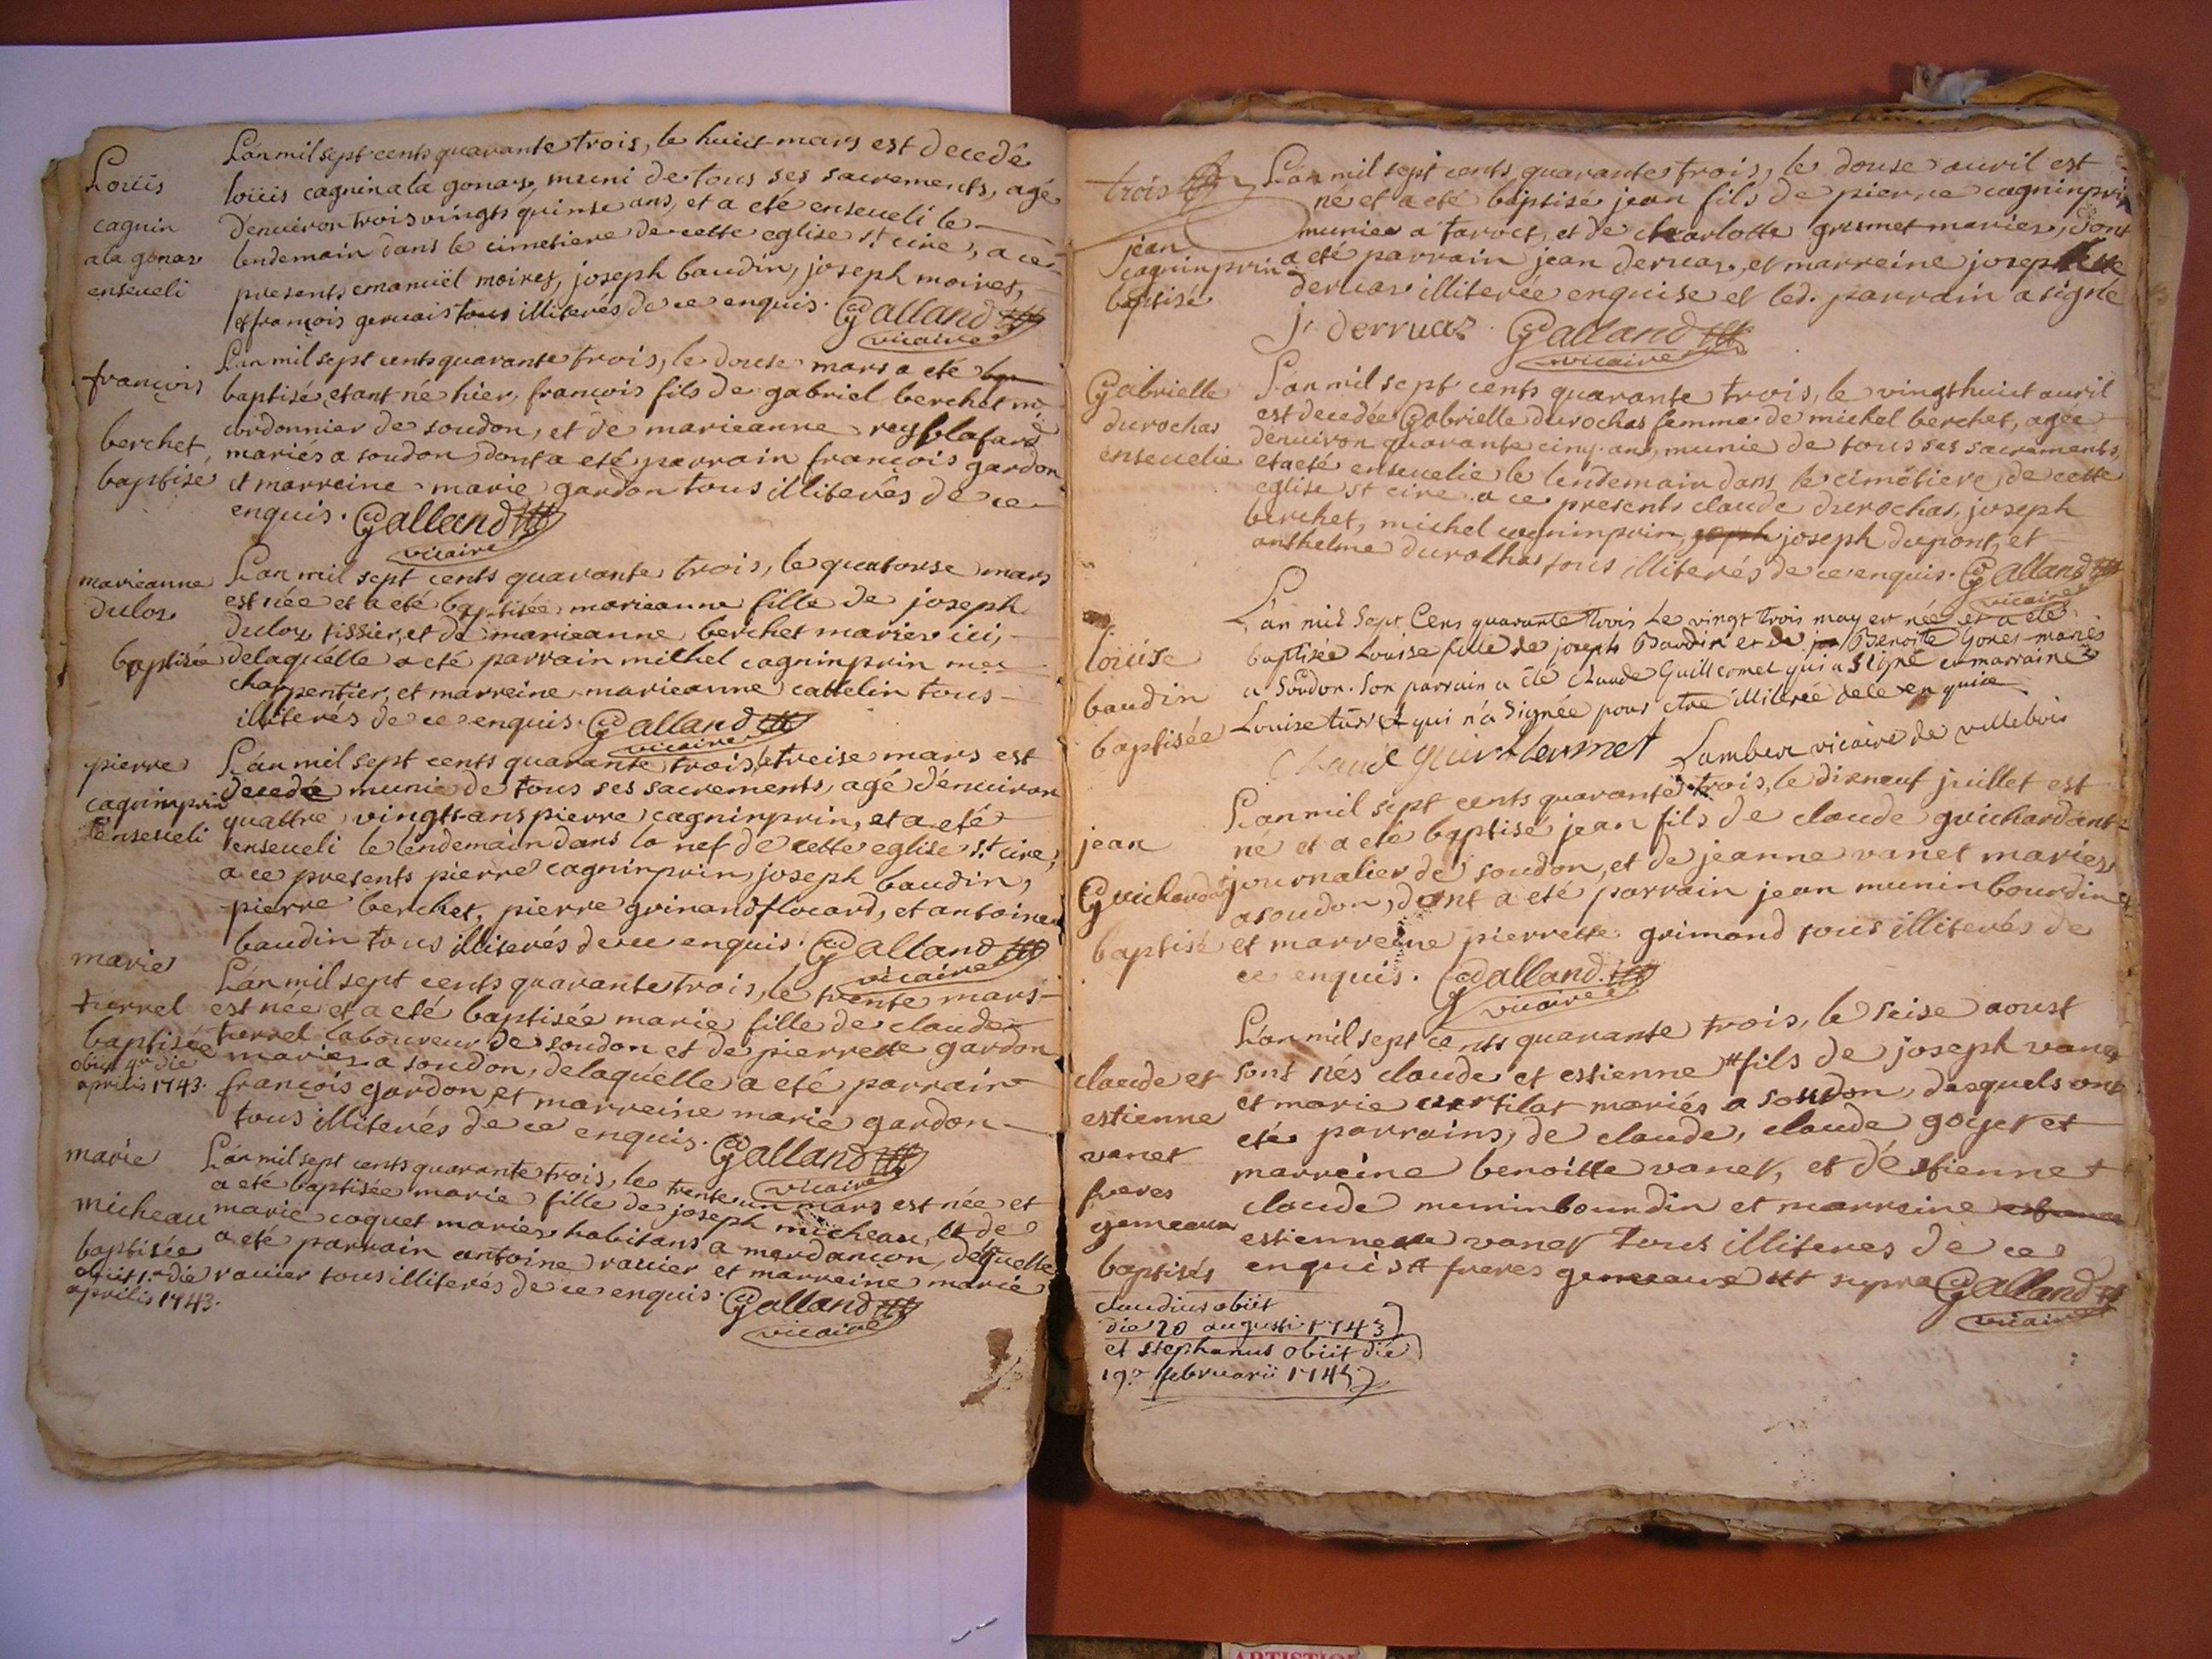 Loüis
cagnin
ala gonas
enseveli
L'an mil sept cents quarante trois, le huict mars est decedé
loüis cagnin ala gonas, muni de tous ses sacrements, agé
d'enuiron trois vingts quinse ans, et a eté enseueli le
lendemain dans le cimetiere de cette eglise st cire, a ce
presents emanuël moires, joseph baudin, joseph moires,
et françois geruais tous illiterés de ce enquis. Galland
vicaire
françois
berchet
baptisé
L'an mil sept cents quarante trois, le douse mars a eté
baptisé, etant né hier, françois fils de gabriel berchet me
cordonnier de soudon, et de marieanne rey blafard
mariés a soudon, dont a eté parrain françois gardon
et marreine marie gardon tous illiterés de ce
enquis. Galland
vicaire
marieanne
dulor
baptisée
L'an mil sept cents quarante trois, le quatorse mars
est née et a eté baptisée marieanne fille de joseph
dulor tissier, et de marieanne berchet maries ici,
delaquelle a eté parrain michel cagninprin me
charpentier, et marreine marieanne cattelin tous
illiterés de ce enquis. Galland
vicaire
pierre
cagninprin
enseueli
L'an mil sept cents quarante trois, le treise mars est
decedé munie de tous ses sacrements, agé d'enuiron
quattre vingts ans pierre cagninprin, et a eté
enseueli le lendemain dans la nef de cette eglise st cire,
a ce presents pierre cagninprin, joseph baudin,
pierre berchet, pierre grinand flocard, et antoine
baudin tous illiterés de ce enquis. Galland
vicaire
marie
tierrel
baptisée
obiit 4a die
aprilis 1743.
L'an mil sept cents quarante trois, le trente mars
est née et a eté baptisée marie fille de claude
tierrel laboureur de soudon et de pierrette gardon
maries a soudon, delaquelle a eté parrain
françois gardon, et marreine marie gardon
tous illiterés de ce enquis. Galland
vicaire
marie
micheau
baptisée
obiit 1a die
aprilis 1743.
L'an mil sept cents quarante trois, le trente un mars est née et
a eté baptisée marie fille de joseph micheau, et de
marie coquet maries habitans a merdançon, de quelle
a eté parrain antoine rauier et marreine marie
rauier tous illiteres de ce enquis. Galland
vicaire
trois
jean
cagninprin
baptisé
L'an mil sept cents quarante trois, le douse auril est
né et a eté baptisé jean fils de pierre cagninprin
munier a tarvet, et de charlotte grumet maries, dont
a eté parrain jean deruas, et marreine josephtte
deruas illiteree enquise et led. parrain a signé
jn derruaz. Galland
vicaire
Gabrielle
durochas
enseuelie
L'an mil sept cents quarante trois, le vingthuict auril
est decedée Gabrielle durochas femme de michel berchet, agée
d'enuiron quarante cinq ans, munie de tous ses sacrements,
et a eté enseuelie le lendemain dans le cimêtiere, de cette
eglise st cire. a ce presents claude durochas, joseph
berchet, michel cagninprin, joseph joseph dupont, et
anthelme durochas tous illiterés de ce enquis. Galland
vicaire
loüise
baudin
baptisée
L'an mil Sept Cens quarante trois Le vingt trois may est née et a eté
baptisée Louise fille de joseph Baudin et de Benoite Gones mariés
a Soudon. Son parrain a été Claude Guillermet qui a Signé et marraine
Louise qui n'a Signée pour etre illiterée de ce enquise
Claude guinllermet Lambert vicaire de villebois
jean
Guichardant
baptisé
L'an mil sept cents quarante trois, le disneuf juillet est
né et a eté baptisé jean fils de claude guichardant
journalier de soudon, et de jeanne vanet maries
a soudon, dont a eté parrain jean munin bourdin
et marreine pierrette grimond tous illiterés de
ce enquis. Galland
vicaire
claude et
estienne
vanet
freres
gemeaux
baptisés
claudius obiit
die 20 augusti 1743
et stephanus obiit die
19a februarii 1745
L'an mil sept cents quarante trois, le seise aoust
sont nés claude et estienne # fils de joseph vanet
et marie curtilat mariés a soudon, desquels ont
eté parrains, de claude, claude goyet et
marreine benoitte vanet, et d'estienne
claude muninbourdin et marreine
estiennette vanet tous illiteres de ce
enquis # freres gemeaux ut supra Galland
vicaire